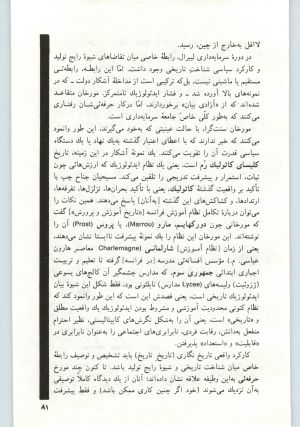 لااقل به‌خارج از چین، رسید.
در دورهٔ سرمایه‌داری لیبرال، رابطهٔ خاصی میان تقاضاهای شیوهٔ رایج تولید
و کارکرد سیاسی شناخت تاریخی وجود داشت. امّا این رابطه، رابطه‌ئی
مستقیم یا ماشینی نیست، بل‌که ترکیبی است از مداخلهٔ آشکار دولت ــ که در
نمونه‌های بالا آورده شد ــ و فشار ایدئولوژیك ناملموس‌تر. مورخان متقاعد
شده‌اند که از «آزادی بیان» برخوردارند، امّا درکار حرفه‌ئی‌شان رفتاری
می‌کنند که به‌طور کلّی خاصّ جامعهٔ سرمایه‌داری است.
مورخان سنت‌گرا، با حالت عینیتی که به‌خود می‌گیرند، این طور وانمود
می‌کنند که خبر ندارند که با اعطای اعتبار گذشته به‌یك نهاد یا یك دستگاه
سیاسی قدرت آن را تقویت می‌کنند. یك نمونهٔ آشکار در این زمینه، تاریخ
کلیسای کاتولیك رُم است، یعنی یك نظام ایدئولوژیك که ارزش‌هائی چون
ثبات، استمرار و پیشرفت تدریجی را تلقین می‌کند. مسیحیان جناح چپ با
تأکید بر واقعیت گذشتهٔ کاتولیك، یعنی با تأکید بر بحران‌ها، تزلزل‌ها، تفرقه‌ها،
ارتدادها، و کشاکش‌های این گذشته [به‌آنان] پاسخ می‌دهند. همین نکات را
می‌توان دربارهٔ تکامل نظام آموزش فرانسه [تاریخ آموزش و پرورش] گفت
که مورخانی چون دورکهایم، مارو (Marrou)، یا پروس (Prost) آن را
نوشته‌اند. این مورخان این نظام را یك نمونهٔ پیشرفت ناایستا نشان می‌دهند،
یعنی از زمان [نظام آموزش] شارلمانی (Charlemagne) معاصر هارون
عباسی. م.) مؤسس افسانه‌ئی مدرسه در [فرانسه] گرفته تا تعلیم و تربیت
اجباری ابتدائی جمهوری سوم، که مدارس چشمگیر آن کالج‌های یسوعی
(ژزوئیت) ولیسه‌های (Lycee مدارس) ناپلئونی بود، فقط شکل این شیوهٔ بیان
ایدئولوژیك تاریخی است، یعنی قصدش این است که این طور وانمود کند که
نظام کنونی محدودیت آموزشی و مشروط بودن ایدئولوژیك یك واقعیت مطلق
و «تاریخی» است، یعنی آن را به‌شکل نگرش‌های کاپیتالیستی، نظیر احترام
منفعل به‌دانش، رقابت فردی، نابرابری‌های اجتماعی را به‌عنوان نابرابری در
«قابلیت» و «استعداد» بپذیرفتن.
کارکرد واقعی تاریخ نگاری (تاریخ تاریخ) باید تشخیص و توصیف رابطهٔ
خاص میان شناخت تاریخی و شیوهٔ رایج تولید باشد. تا کنون چند مورخ
حرفه‌ئی به‌این وظیفه علاقه نشان داده‌اند؛ آنان از یك دیدگاه کاملاً توصیفی
به‌آن نزدیك می‌شوند (خود اگر چنین کاری ممکن باشد) و فقط پیشرفت
۸۱